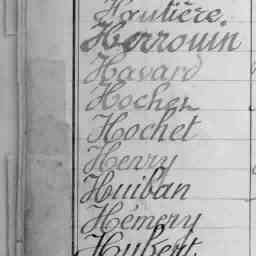 Hautière
Herrouin
Havard
Hocher
Hochet
Henry
Huiban
Hémery
Hubert